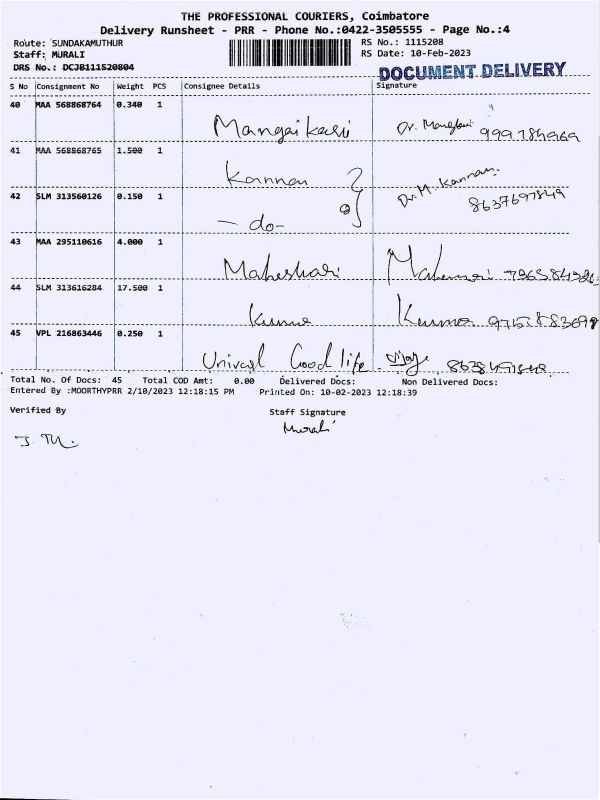 THE PROFESSIONAL COURIERS, Coimbatore
Delivery Runsheet - PRR - Phone No.:0422-3505555 - Page No.:4
Route: SUNDAKAMUTHUR RS No.: 1115208
Staff: MURALI RS Date: 10-Feb-2023
DRS No.: DCJB111520804 DOCUMENT DELIVERY
S No Consignment No Weight PCS Consignee Details Signature
40 MAA 568868764 0.340 1
Mangaikasi Dr.
41 MAA 568868765 1.500 1
Kannan Dr. M. Kannan
42 SLM 313560126 0.150 1
- do - 8637697849
43 MAA 295110616 4.000 1
Maheshari
44 SLM 313616284 17.500 1
45 VPL 216863446 0.250 1
Good life
Total No. Of Docs: 45 Total COD Amt: 0.00 Delivered Docs: Non Delivered Docs:
Entered By :MOORTHYPRR 2/10/2023 12:18:15 PM Printed On: 10-02-2023 12:18:39
Verified By Staff Signature
Murali